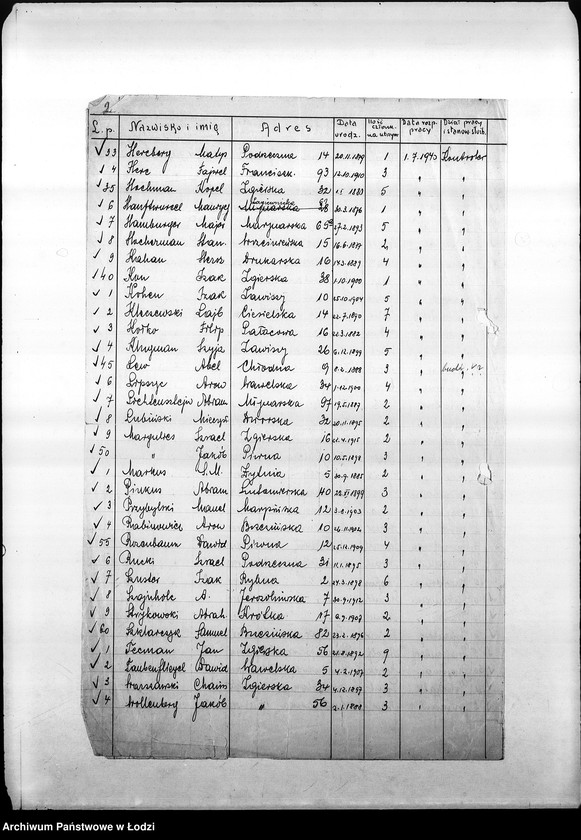 2.
L.p. Nazwisko i imię Adres Data urodz. Ilość członk. na utrzym Data rozp. pracy Dział pracy i stanow. służb.
33 Hercberg Podrzeczna 14 20.11.1899 1 1.7.1940 Kontroler
4 Herc Fajwel Franciszk. 93 12.10.1910 3 "
35 Hochman Zgierska 32 1883 5 "
6 Maurycy 28 20.3.1876 1 "
7 Hamburger Majer Marynarska 65a 27.2.1893 5 "
8 Hocherman Szan. 15 16.6.1877 2 "
9 Kahan Hersz Drukarska 16 1889 4 "
140 Kon Izak Zgierska 38 1.10.1900 1 "
1 Kohen Izak Zawiszy 10 25.10.1904 5 "
2 Klaczewski Lajb Ciesielska 14 22.7.1890 7 "
3 Kotko Filip Pałacowa 16 22.3.1882 4 "
4 Klugman Szyja Zawiszy 26 6.12.1899 5 "
145 Lew Abel Chłodna 9 1888 3
6 Lipszyc Aron Wawelska 34 1.12.1900 4 "
7 Abram Młynarska 97 19.5.1887 2 "
8 Lubiński Dworska 32 20.11.1895 2 "
9 Margulies Szrael Zgierska 16 21.4.1915 2 "
50 " Jakób Piwna 10 10.5.1898 3 "
1 Markus S.M. Żytnia 5 30.9.1885 2 "
2 Pinkus Abram Lutomierska 40 1899 3 "
3 Przybylski Manel Marysińska 12 3.2.1903 2 "
4 Rabinowicz Aron Brzezińska 10 26.11.1902 3 "
55 Rozenbaum Dawid Piwna 12 25.11.1904 4 "
6 Rucki Szrael Podrzeczna 31 11.1.1895 3 "
7 Szuster Izak Rybna 2 24.3.1898 6 "
8 Szajnholc A. Jerozolimska 7 30.9.1912 3 "
9 Stryjkowski Abrah. Krótka 17 6.9.1908 2 "
60 Szklarczyk Samuel Brzezińska 82 23.2.1896 2 "
1 Tecman Jan Zgierska 56 21.8.1892 9 "
2 Taubenfliegel Dawid Wawelska 5 4.2.1907 2 "
3 Warszawski Chaim Zgierska 34 4.12.1897 3 "
4 Wollenberg Jakób " 56 3 "
Archiwum Państwowe w Łodzi